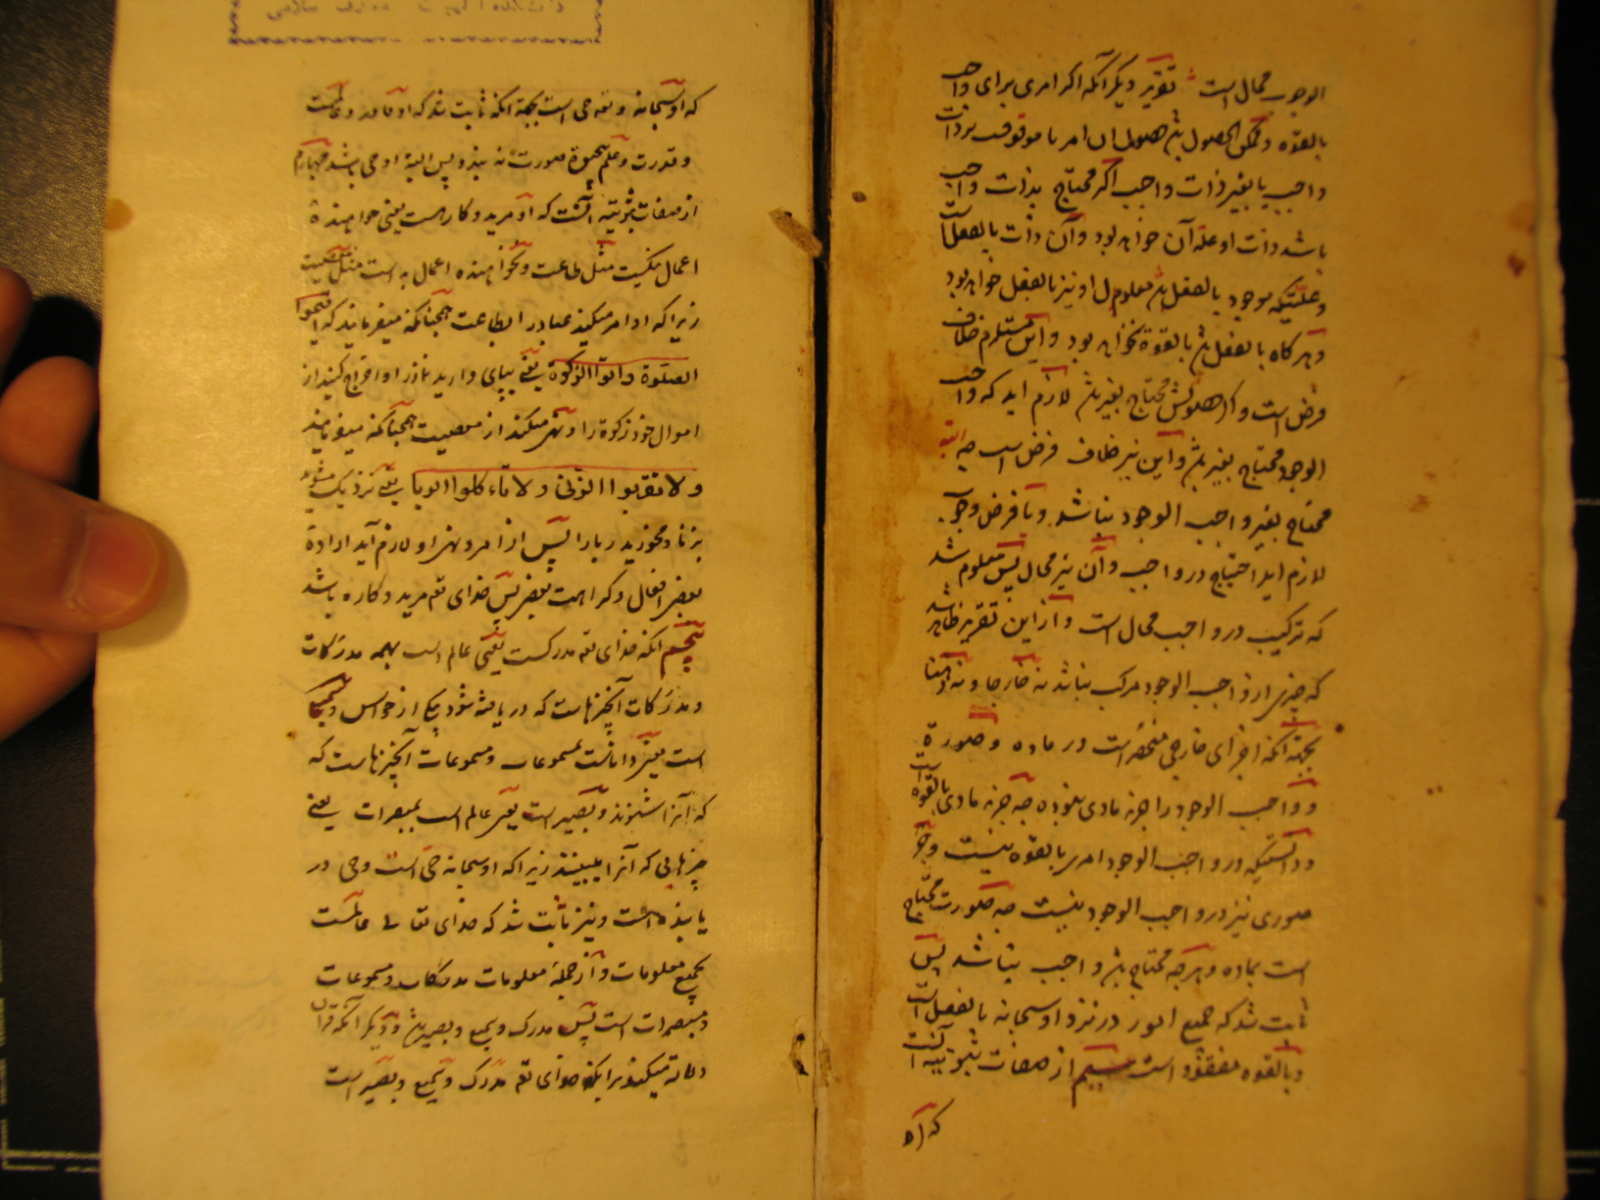 الوجوب محال است تقریر دیگر آنکه اگر امری برای واجب
بالقوه و ممکن الحصول باشد حصول آن امر یا موقوفست بر ذات
واجب یا بغیر ذات واجب اگر محتاج بذات واجب
باشد ذات او علة آن خواهد بود و آن ذات بالفعل است
و علتیکه موجود بالفعل باشد معلول او نیز بالفعل خواهد بود
و هرگاه بالفعل باشد بالقوة نخواهد بود و این مستلزم خلاف
فرض است و اگر حصولش محتاج بغیر باشد لازم اید که واجب
الوجود محتاج بغیر باشد و این نیز خلاف فرض است چه
محتاج بغیر واجب الوجود نباشد و با فرض وجوب
لازم اید احتیاج در واجب و آن نیز محال پس معلوم شد
که ترکیب در واجب محال است و از این تقریر ظاهر شد
که چیزی از واجب الوجود مرکب نباشد نه خارجا و نه ذهنا
بجهة آنکه اجزای خارجی منحصر است در ماده و صورة
و واجب الوجود را جزء مادی نبوده چه جزء مادی بالقوه است
و دانستیکه در واجب الوجود امری بالقوه نیست و جزو
صوری نیز در واجب الوجود نیست چه صورت محتاج
است بماده و هر چه محتاج باشد واجب نباشد پس
ثابت شد که جمیع امور در نزد او سبحانه بالفعل است
و بالقوه مفقود است سیم از صفات ثبوتیه آنست
که آه
که او سبحانه و تعه حی است بجهة آنکه ثابت شد که او قادر و عالمست
و قدرت و علم بی حیوة صورت نه بندد پس البته او حی باشد چهارم
از صفات ثبوتیه آنست که او مرید و کارهست یعنی خواهنده
اعمال نیکیست مثل طاعت و نخواهنده اعمال بد است مثل معصیت
زیرا که او امر میکند عباد را بطاعت همچنانکه میفرماید که اقیموا
الصلوة و اتوا الزکوة یعنی بپای دارید نماز را و اخراج کنید از
اموال خود زکوة را و نهی میکند از معصیت همچنانکه میفرماید
و لا تقربوا الزنی و لا تاء کلوا الربا یعنی نزدیک مشوید
بزنا و مخورید ربا را پس از امر و نهی او لازم آید ارادة
بعض افعال و کراهت بعض پس خدای تعه مرید و کاره باشد
پنجم آنکه خدای تعه مدرکست یعنی عالم است بهمه مدرکات
و مدرکات آنچیزهاست که دریافته شود بیکی از حواس و سمیع
است یعنی داناست بمسموعات و مسموعات آنچیزهاست که
که آنرا شنوند و بصیر است یعنی عالم است بمبصرات یعنی
چیزهایی که آنرا میبینند زیرا که او سبحانه حی است و حی در
یابنده است و نیز ثابت شد که خدای تعالی عالمست
بجمیع معلومات و از جملهٔ معلومات مدرکات و مسموعات
و مبصرات است پس مدرک و سمیع و بصیر باشد و دیگر آنکه قران
دلالة میکند بر اینکه خدای تعه مدرک و سمیع و بصیر است